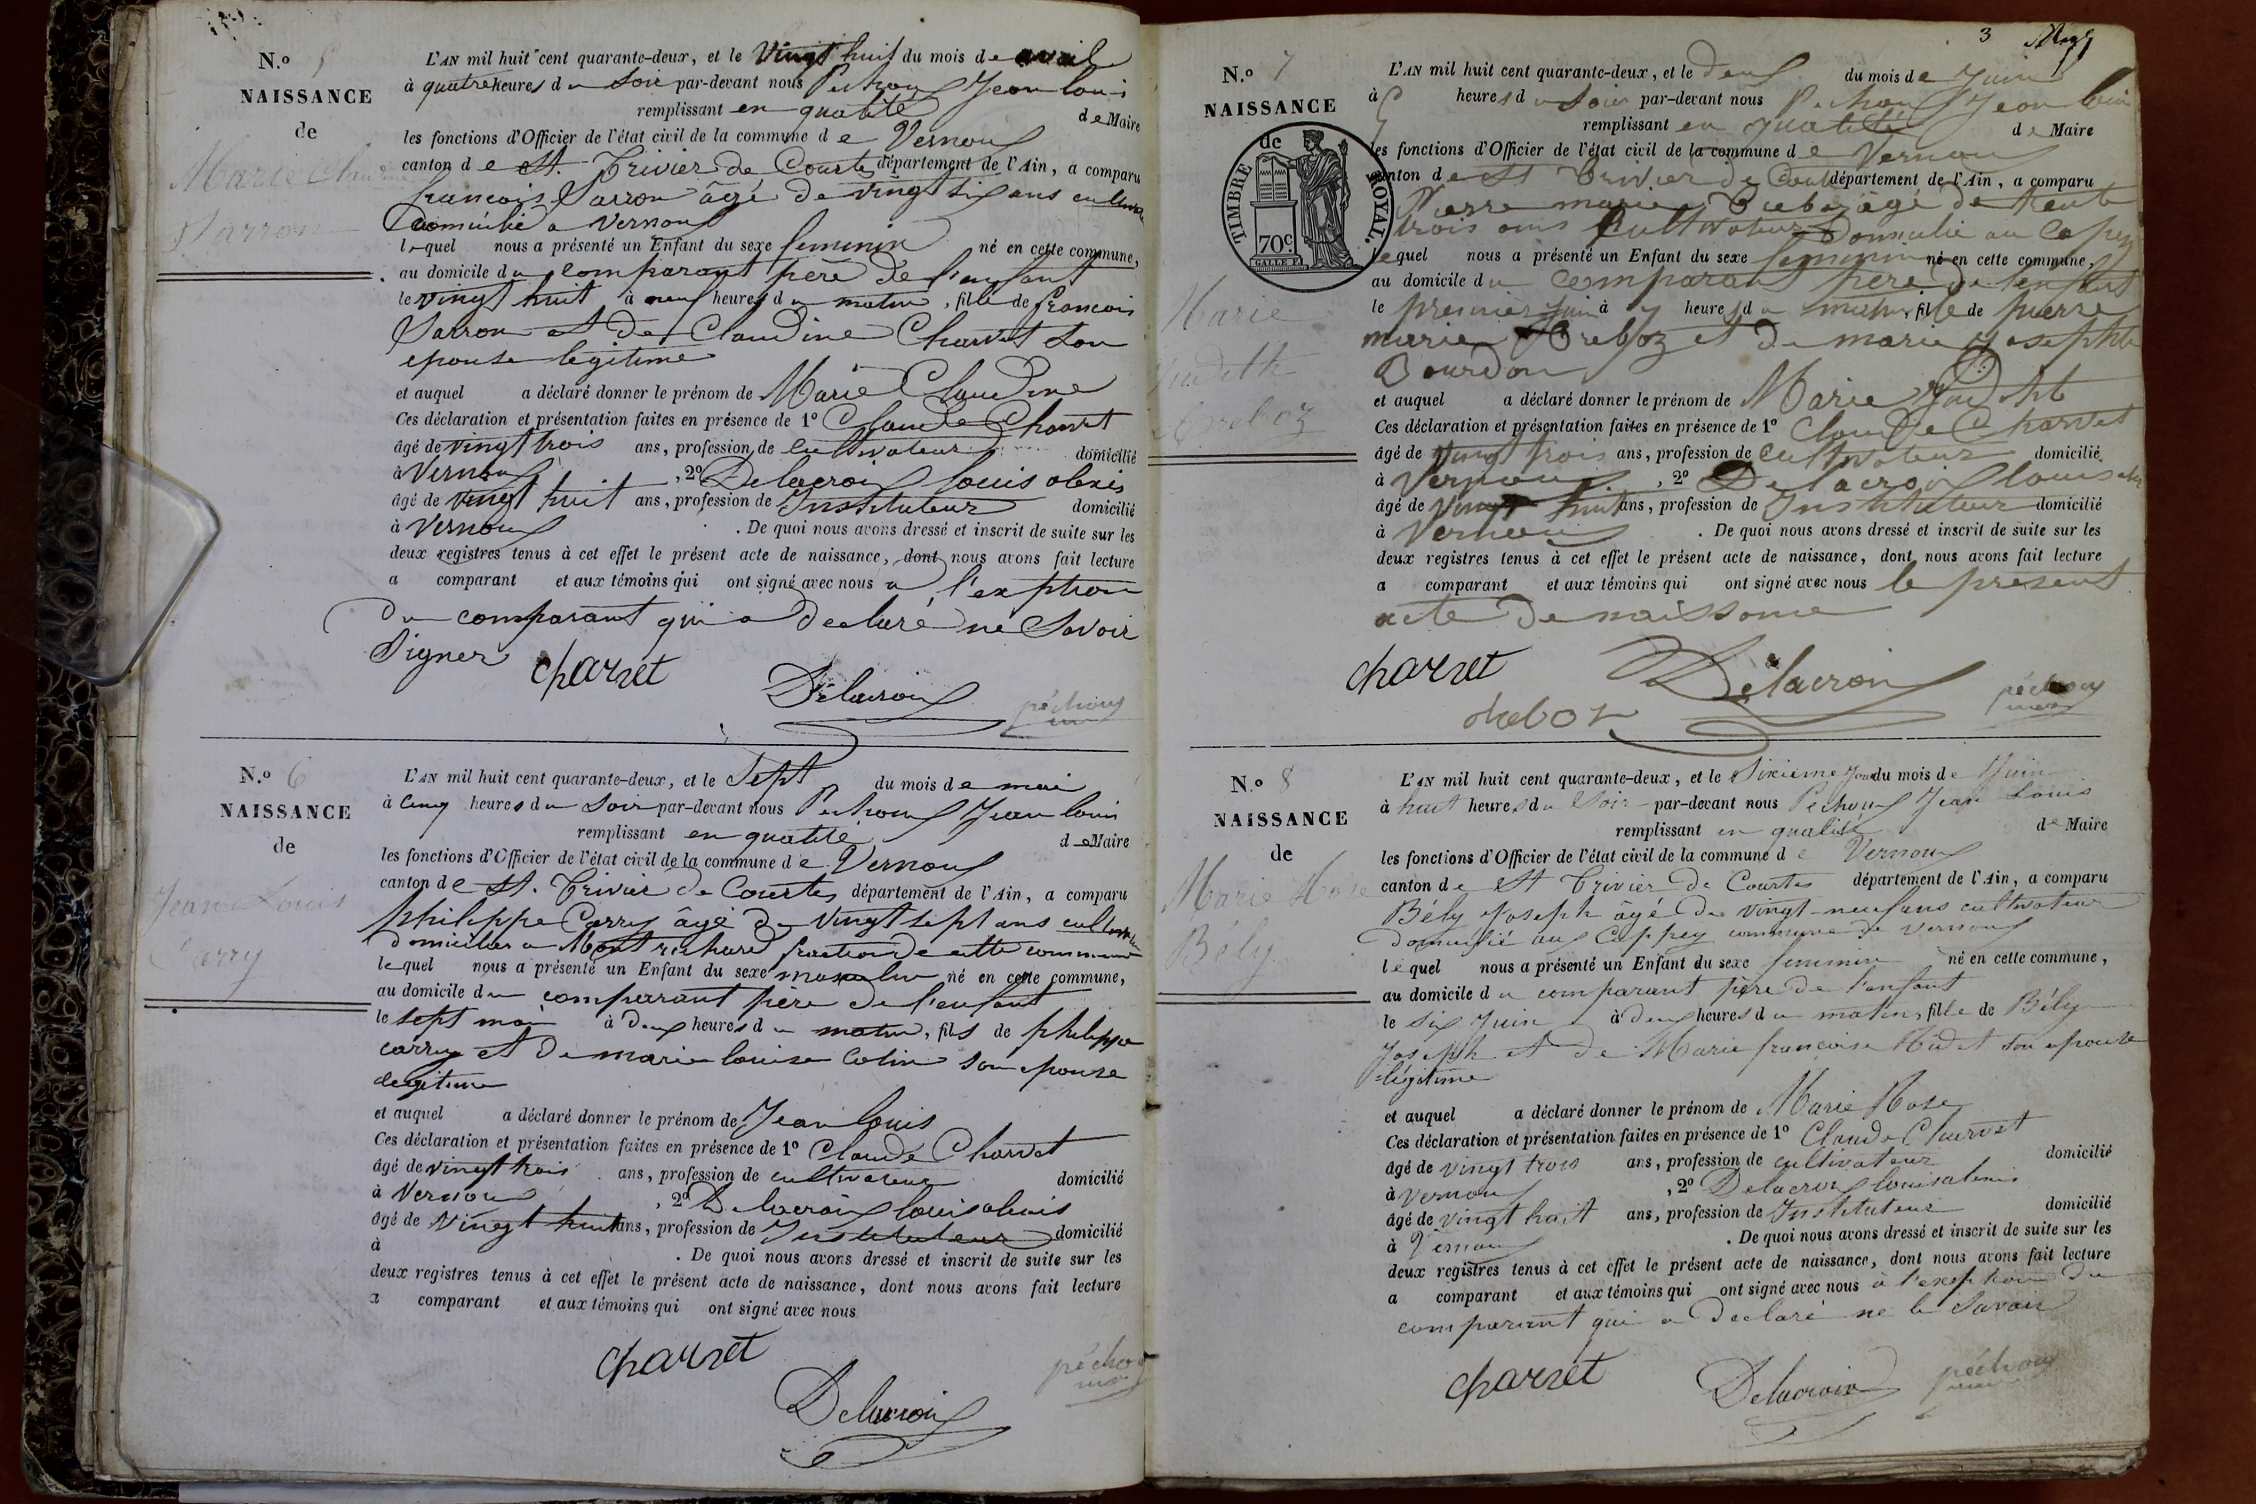 N.º 5
NAISSANCE
de
Marie Claudine
Sarron
L'AN mil huit cent quarante-deux, et le vingt huit du mois de avril
à quatre heures du soir par-devant nous Pechoux Jean louis
remplissant en qualité de Maire
les fonctions d'Officier de l'état civil de la commune de Vernoux
canton de St. Trivier de Courtes département de l'Ain, a comparu
francois Sarron âgé de vingt six ans cultivateur
domicilié a vernoux
lequel nous a présenté un Enfant du sexe feminin né en cette commune,
au domicile du comparant père de l'enfant
le vingt huit à neuf heures du matin, fille de francois
Sarron et de Claudine Charvet son
epouse legitime
et auquel a déclaré donner le prénom de Marie Claudine
Ces déclaration et présentation faites en présence de 1º Claude Charvet
âgé de vingt trois ans, profession de cultivateur domicilié
à Vernoux, 2º Delacroix louis alexis
âgé de vingt huit ans, profession de Instituteur domicilié
à Vernoux. De quoi nous avons dressé et inscrit de suite sur les
deux registres tenus à cet effet le présent acte de naissance, dont nous avons fait lecture
a comparant et aux témoins qui ont signé avec nous a l'exption
du comparant qui a declaré ne savoir
signer
charvet
Delacroix
péchoux
N.º 6
NAISSANCE
de
Jean Louis
Carry
L'AN mil huit cent quarante-deux, et le Sept du mois de mai
à cinq heures du soir par-devant nous Pechoux Jean louis
remplissant en qualité de Maire
les fonctions d'Officier de l'état civil de la commune de Vernoux
canton de St. Trivier de Courtes département de l'Ain, a comparu
philippe Carry âgé de vingt sept ans cultivateur
domicilier a Montrichard fraction de cette commune
lequel nous a présenté un Enfant du sexe masculin né en cette commune,
au domicile du comparant père de l'enfant
le sept mai à deux heures du matin, fils de philippe
carry et de marie louise Colin son epouse
legitime
et auquel a déclaré donner le prénom de Jean louis
Ces déclaration et présentation faites en présence de 1º Claude Charvet
âgé de vingt trois ans, profession de cultivateur domicilié
à Vernoux, 2º Delacroix louis alexis
âgé de vingt huit ans, profession de Instituteur domicilié
à . De quoi nous avons dressé et inscrit de suite sur les
deux registres tenus à cet effet le présent acte de naissance, dont nous avons fait lecture
a comparant et aux témoins qui ont signé avec nous
charvet
Delacroix
péchoux
3
N.º 7
NAISSANCE
de
TIMBRE ROYAL.
70c.
Marie
Judith
Breboz
L'AN mil huit cent quarante-deux, et le deux du mois de Juin
à heures du soir par-devant nous Pechoux Jean louis
remplissant en qualité de Maire
les fonctions d'Officier de l'état civil de la commune de Vernoux
canton de St Trivier de Courtes département de l'Ain, a comparu
Pierre marie Breboz âgé de trente
trois ans Cultivateur domicilié au Capey
lequel nous a présenté un Enfant du sexe feminin né en cette commune,
au domicile du comparant père de l'enfant
le premier Juin à 7 heures du matin, fille de pierre
marie Breboz et de marie josephte
Bourdon
et auquel a déclaré donner le prénom de Marie Judith
Ces déclaration et présentation faites en présence de 1º Claude Charvet
âgé de vingt trois ans, profession de cultivateur domicilié
à Vernoux, 2º Delacroix louis
âgé de vingt huit ans, profession de Instituteur domicilié
à Vernoux. De quoi nous avons dressé et inscrit de suite sur les
deux registres tenus à cet effet le présent acte de naissance, dont nous avons fait lecture
a comparant et aux témoins qui ont signé avec nous le present
acte de naissance
charvet
Delacroix
péchoux
N.º 8
NAISSANCE
de
Marie Rose
Bély
L'AN mil huit cent quarante-deux, et le Sixieme jour du mois de Juin
à huit heures du soir par-devant nous Pechoux Jean Louis
remplissant en qualité de Maire
les fonctions d'Officier de l'état civil de la commune de Vernoux
canton de St Trivier de Courtes département de l'Ain, a comparu
Bély Joseph âgé de vingt-neuf ans cultivateur
domicilié au Cappey commune de vernoux
lequel nous a présenté un Enfant du sexe feminin né en cette commune,
au domicile du comparant père de l'enfant
le six Juin à deux heures du matin, fille de Bély
Joseph et de Marie françoise son epouse
légitime
et auquel a déclaré donner le prénom de Marie Rose
Ces déclaration et présentation faites en présence de 1º Claude Charvet
âgé de vingt trois ans, profession de cultivateur domicilié
à vernoux, 2º Delacroix louis alexis
âgé de vingt huit ans, profession de Instituteur domicilié
à Vernoux. De quoi nous avons dressé et inscrit de suite sur les
deux registres tenus à cet effet le présent acte de naissance, dont nous avons fait lecture
a comparant et aux témoins qui ont signé avec nous à l'exeption du
comparant qui a declaré ne le savoir
charvet
Delacroix
péchoux